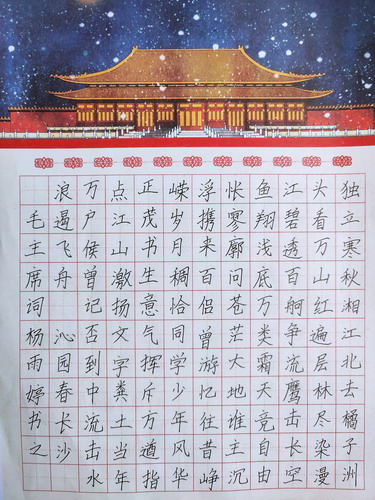 独立寒秋湘江北去橘子洲
头看万山红遍层林尽染漫
江碧透百舸争流鹰击长空
鱼翔浅底万类霜天竞自由
怅寥廓问苍茫大地谁主沉
浮携来百侣曾游忆往昔峥
嵘岁月稠恰同学少年风华
正茂书生意气挥斥方遒指
点江山激扬文字粪土当年
万户侯曾记否到中流击水
浪遏飞舟 沁园春长沙
毛主席词 杨雨婷书之